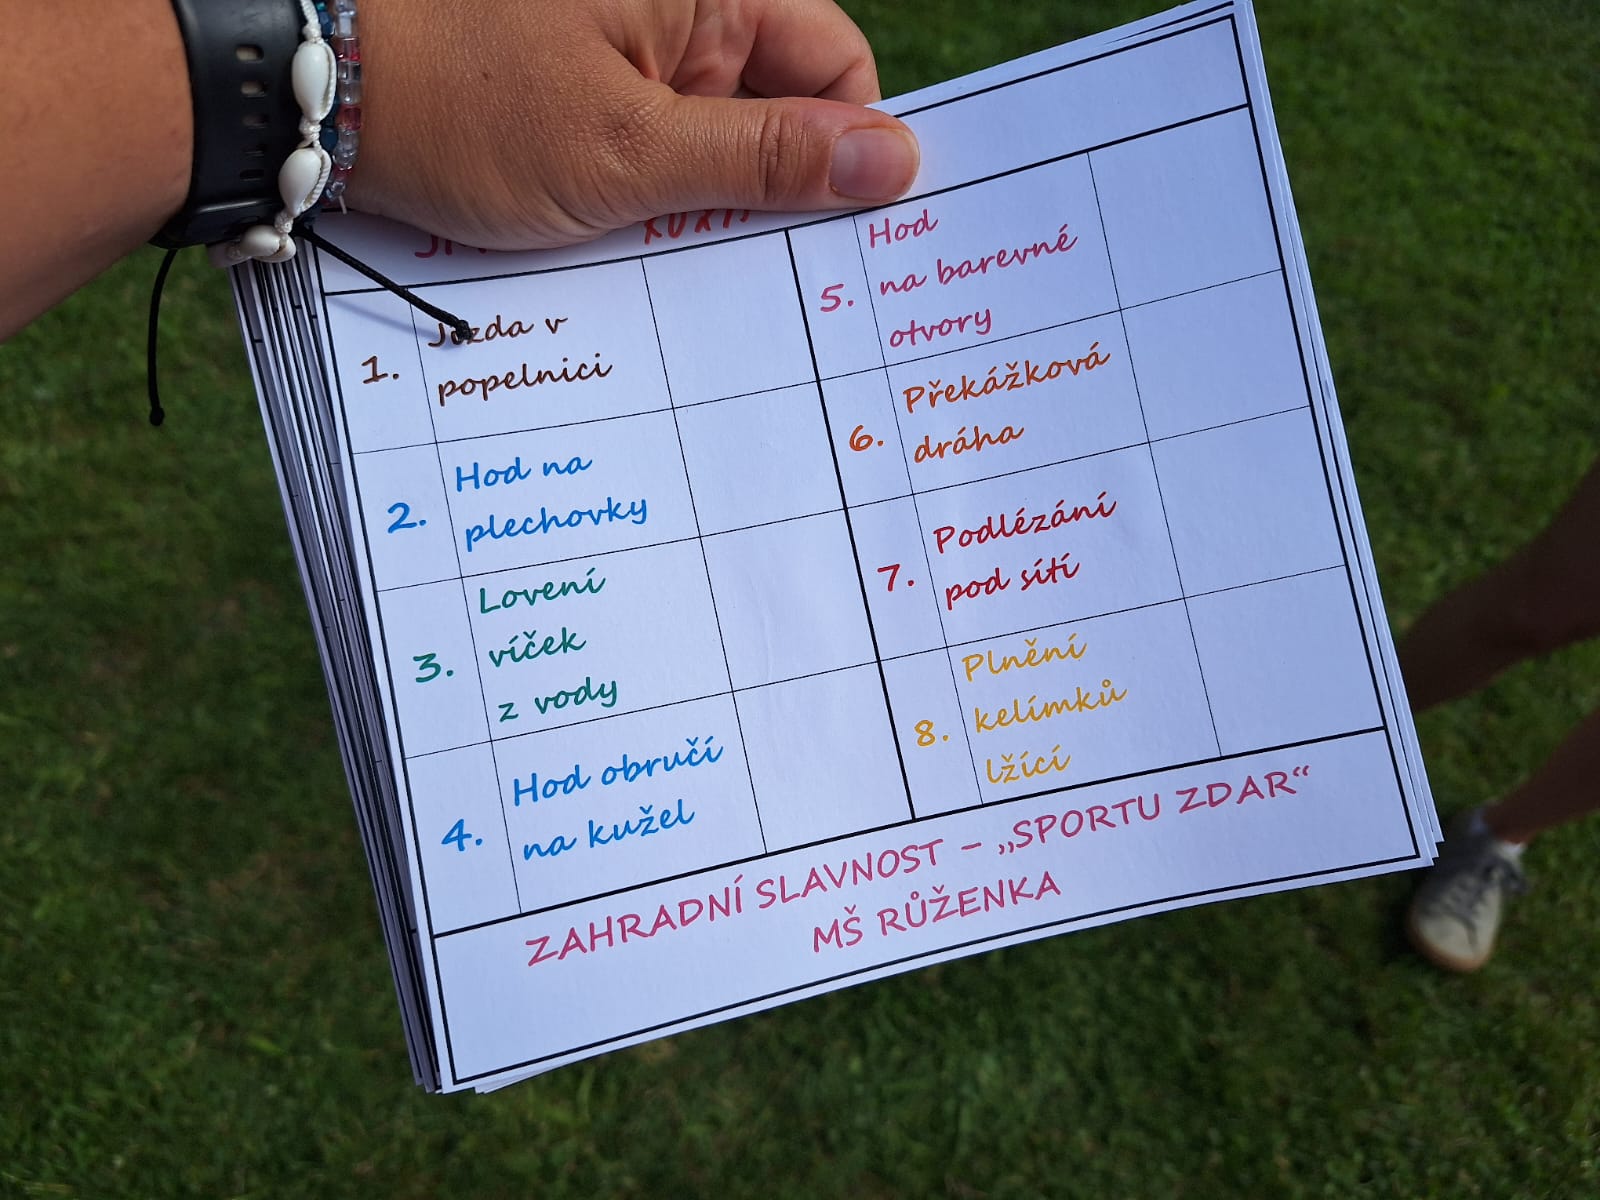 1.
Jízda v
popelnici
2.
Hod na
plechovky
3.
Lovení
víček
z vody
4.
Hod obručí
na kužel
5.
Hod
na barevné
otvory
6.
Překážková
dráha
7.
Podlézání
pod sítí
8.
Plnění
kelímků
lžící
ZAHRADNÍ SLAVNOST – „SPORTU ZDAR“
MŠ RŮŽENKA